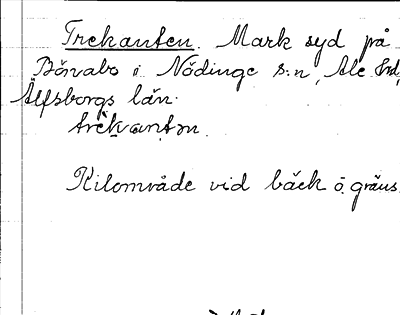 Trekanten. Mark syd på
i Nödinge s:n, Ale hd,
Älfsborgs län.
trekantən.
Kilområde vid bäck o. gräns